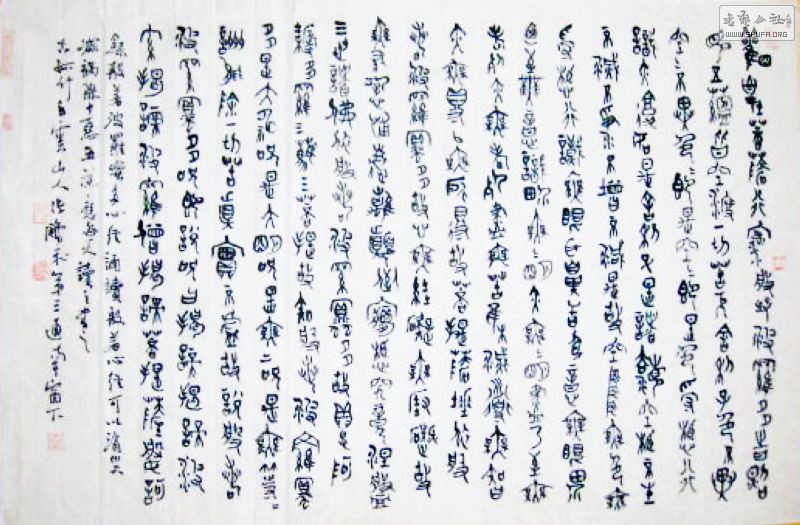 觀自在菩薩行深般若波羅多時照
見五蘊皆空度一切苦厄舍利子色不異
空空不異色色即是空空即是色受想行
識亦復如是舍利子是諸法空相不生
不滅不垢不淨不增不減是故空中無色無
受想行識無眼耳鼻舌身意無眼界
乃至無意識界無無明亦無無明盡乃至無
老死亦無老死盡無苦集滅道無智
亦無得以無所得故菩提薩埵依般
若波羅蜜多故心無罣礙無罣礙故
無有恐怖遠離顛倒夢想究竟涅槃
三世諸佛依般若波羅蜜多故得阿
耨多羅三藐三菩提故知般若波羅蜜
多是大神咒是大明咒是無上咒是無等等
咒能除一切苦真實不虛故說般若
波羅蜜多咒即說咒曰揭諦揭諦波
羅揭諦波羅僧揭諦菩提薩婆訶
般若波羅蜜多心經誦讀般若心經可以
十惡五
白雲山人
WWW.SHUFA.ORG